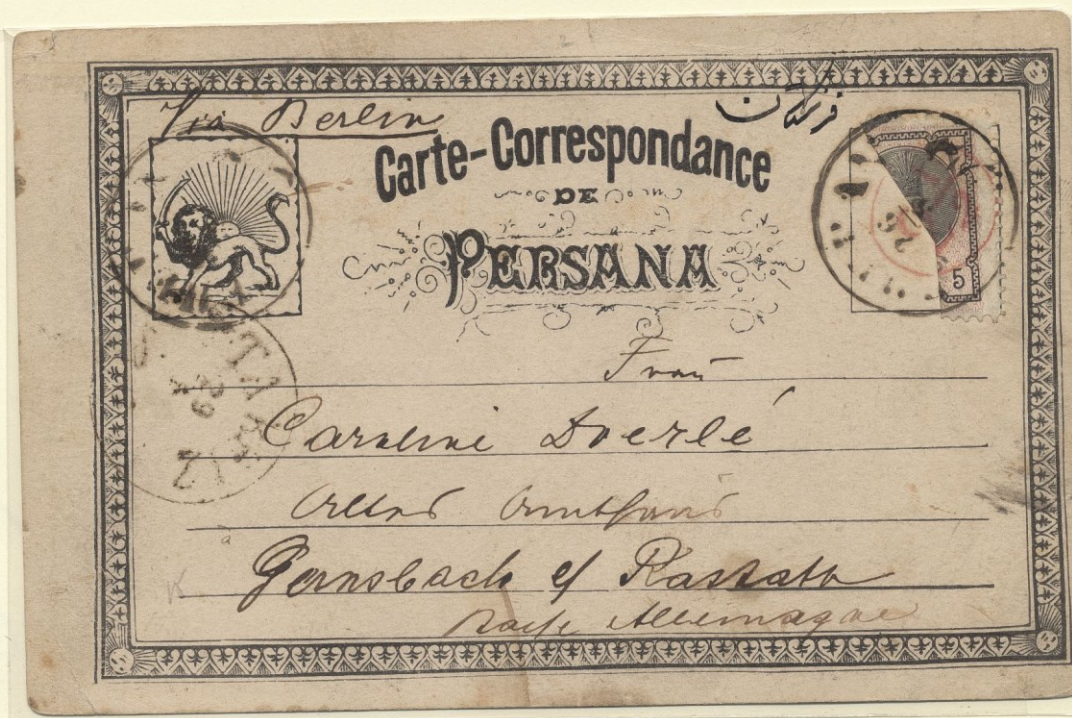 Via Berlin
فرنگستان
Carte-Correspondance
DE
PERSANA
5
26
Frau
Caroline Doerlé
Altes Amthaus
Gernsbach b/ Rastatt
Allemagne